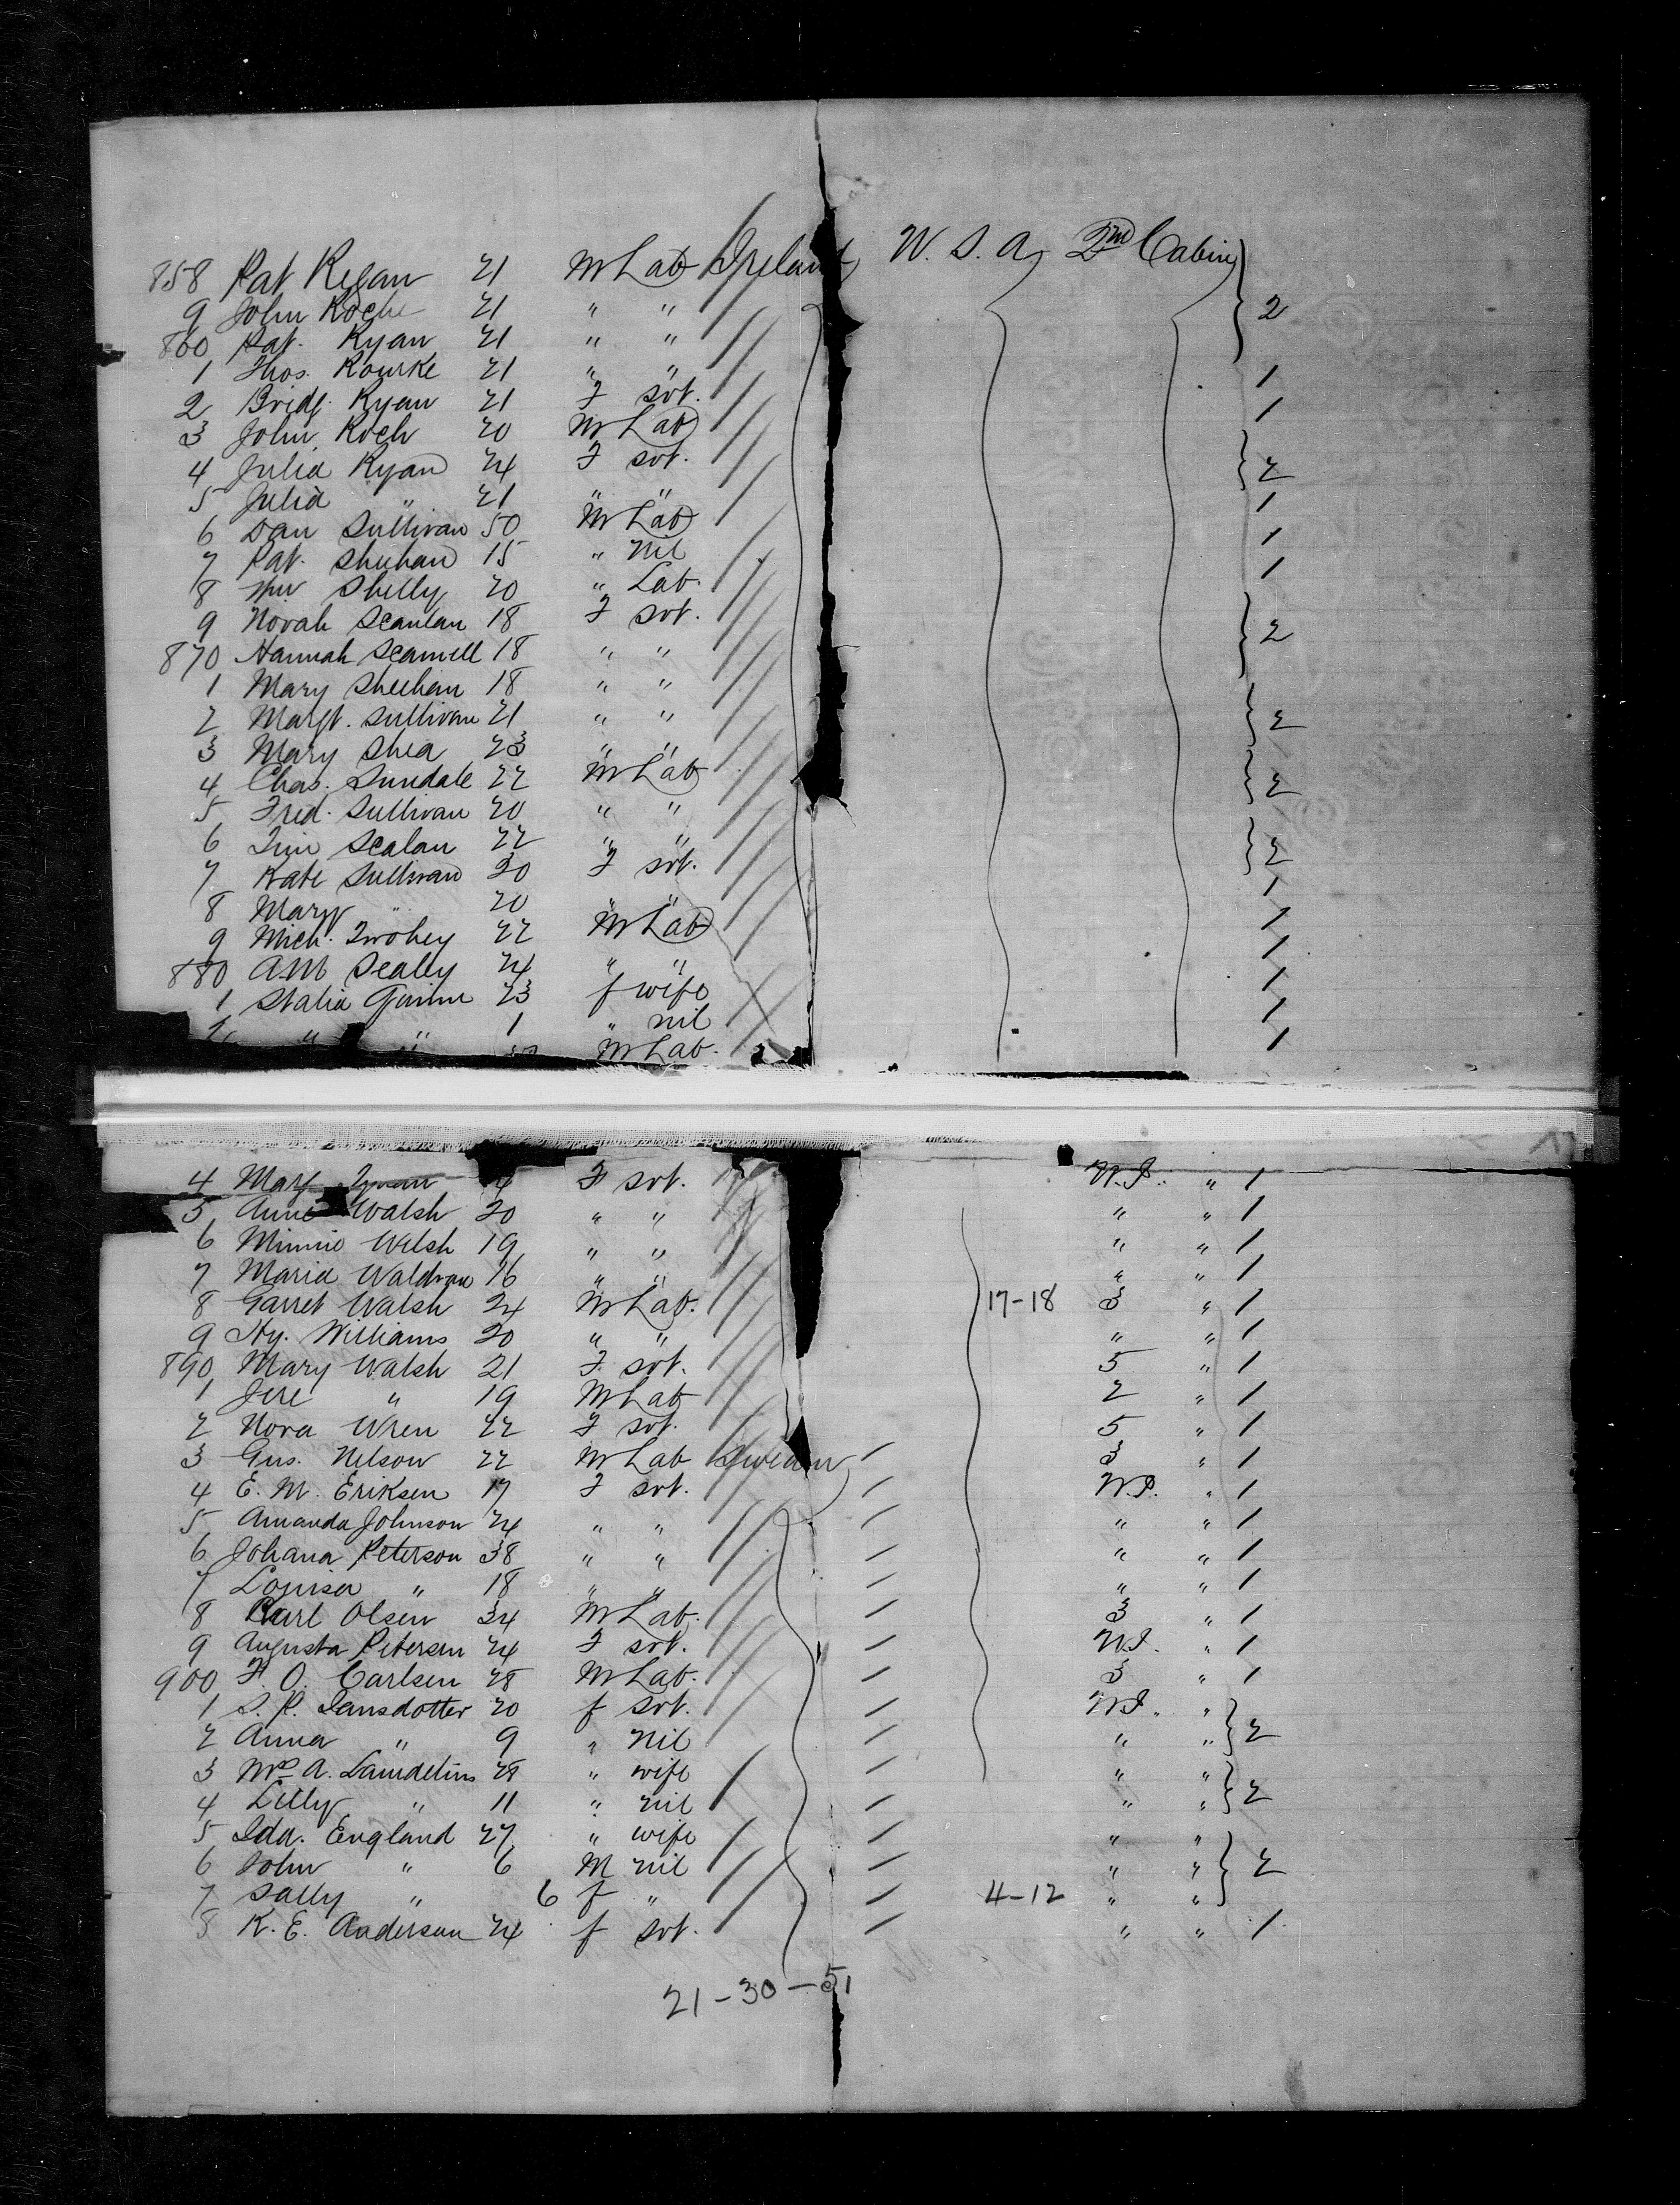 858 Pat Regan 21 M Lab Ireland W. S. A, 2nd Cabin
9 John Roche 21 " " 2
860 Pat. Ryan 21 " "
1 Thos. Rourke 21 " " 1
2 Bridg. Ryan 21 F svt. 1
3 John Roch 20 M Lab
4 Julia Ryan 24 F svt. 2
5 Julia " 21 " " 1
6 Dan Sullivan 50 M Lab 1
7 Pat. Sheehan 15 " nil 1
8 Wm Shelly 20 " Lab.
9 Norah Scanlan 18 F svt. 2
870 Hannah Scannell 18 " "
1 Mary Sheehan 18 " "
2 Margt. Sullivan 21 " " 2
3 Mary Shea 23 " "
4 Chas. Sundale 22 M Lab 2
5 Fred. Sullivan 20 " "
6 Tim Scalan 22 " " 2
7 Kate Sullivan 20 F svt. 1
8 Mary " 20 " " 1
9 Mich. Twohey 22 M Lab 1
880 AM Sealey 24 " " 1
1 Stalia 23 f wife 1
2 " " 1 " nil 1
M Lab.
4 Mary F svt. W.S. " 1
5 Annie Walsh 20 " " " " 1
6 Minnie Welsh 19 " " " " 1
7 Maria Waldron 16 " " " " 1
8 Garret Walsh 24 M Lab. 17-18 3 " 1
9 Hy. Williams 20 " " " " 1
890 Mary Walsh 21 F svt. 5 " 1
1 Jere " 19 M Lab 2 " 1
2 Nora Wren 22 F svt. 5 " 1
3 Gus. Nelson 22 M Lab Sweden 3 " 1
4 E. M. Eriksen 17 F svt. W.S. " 1
5 Amanda Johnson 24 " " " " 1
6 Johana Peterson 38 " " " " 1
7 Louisa " 18 " " " " 1
8 Karl Olsen 34 M Lab. 3 " 1
9 Augusta Petersen 24 F svt. W.S. " 1
900 F. O. Carlsen 28 M Lab. 3 " 1
1 S. P. Jansdotter 20 f svt. W.S. "
2 Anna " 9 " nil " " 2
3 Mrs A. 28 " wife " "
4 Lilly " 11 " nil " " 2
5 Ida. England 27 " wife " "
6 John " 6 M nil " " 2
7 Sally " 6 f " 4-12 " "
8 K. E. Anderson 24 f svt. " " 1
21-30-51